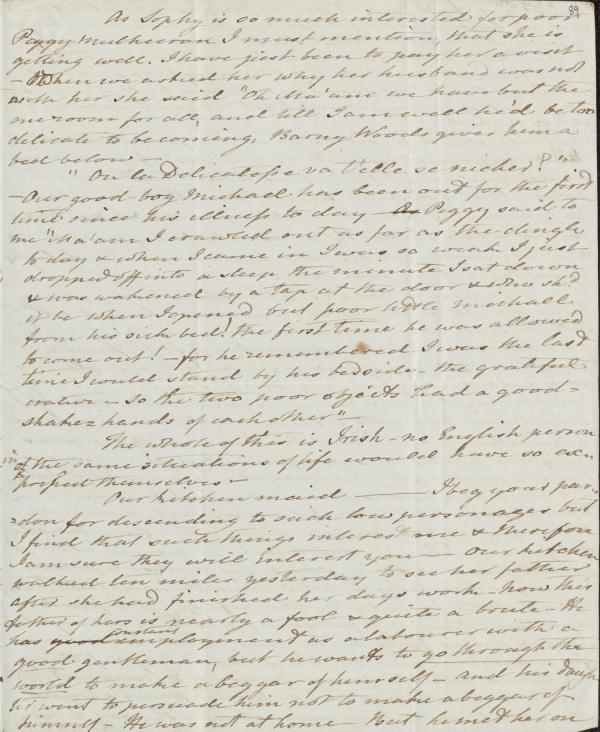 39
As Sophy is so much interested for poor
Peggy Mulheeran I must mention that she is
getting well. I have just been to pay her a visit
- When we asked her why her husband was not
with her she said "Oh Ma'am we have but the
one room for all, and till I am well he'd be too
delicate to be coming, Barny Woods gives him a
bed below -
"Ou la Delicatesse va t'elle se nicher?"
- Our good boy Michael has been out for the first
time since his illness to day - As Peggy said to
me "Ma'am I crawled out as far as the dingle
to day & when I came in I was so weak I just
dropped off into a sleep the minute I sat down
& was wakened by a tap at the door & who shd
it be when I opened but poor little Michall
from his sick bed! the first time he was allowed
to come out! - for he remembered I was the last
time I would stand by his bedside - the grateful
crature - So the two poor objects had a good=
shake=hands of each other"-
The whole of this is Irish - no English person
in
of the same situations of life would have so ex=
prest themselves -
Our kitchen maid ——— I beg your par=
=don for descending to such low personages but
I find that such things interest me & therefore
I am sure they will interest you - Our kitchen
walked ten miles yesterday to see her father
after she had finished her days work - Now this
father of hers is nearly a fool & quite a brute - He
constant
has good employment as a labourer with a
good gentleman, but he wants to go through the
world to make a beggar of himself - and his daugh
ter went to persuade him not to make a beggar of
himself - He was not at home - But he met her on